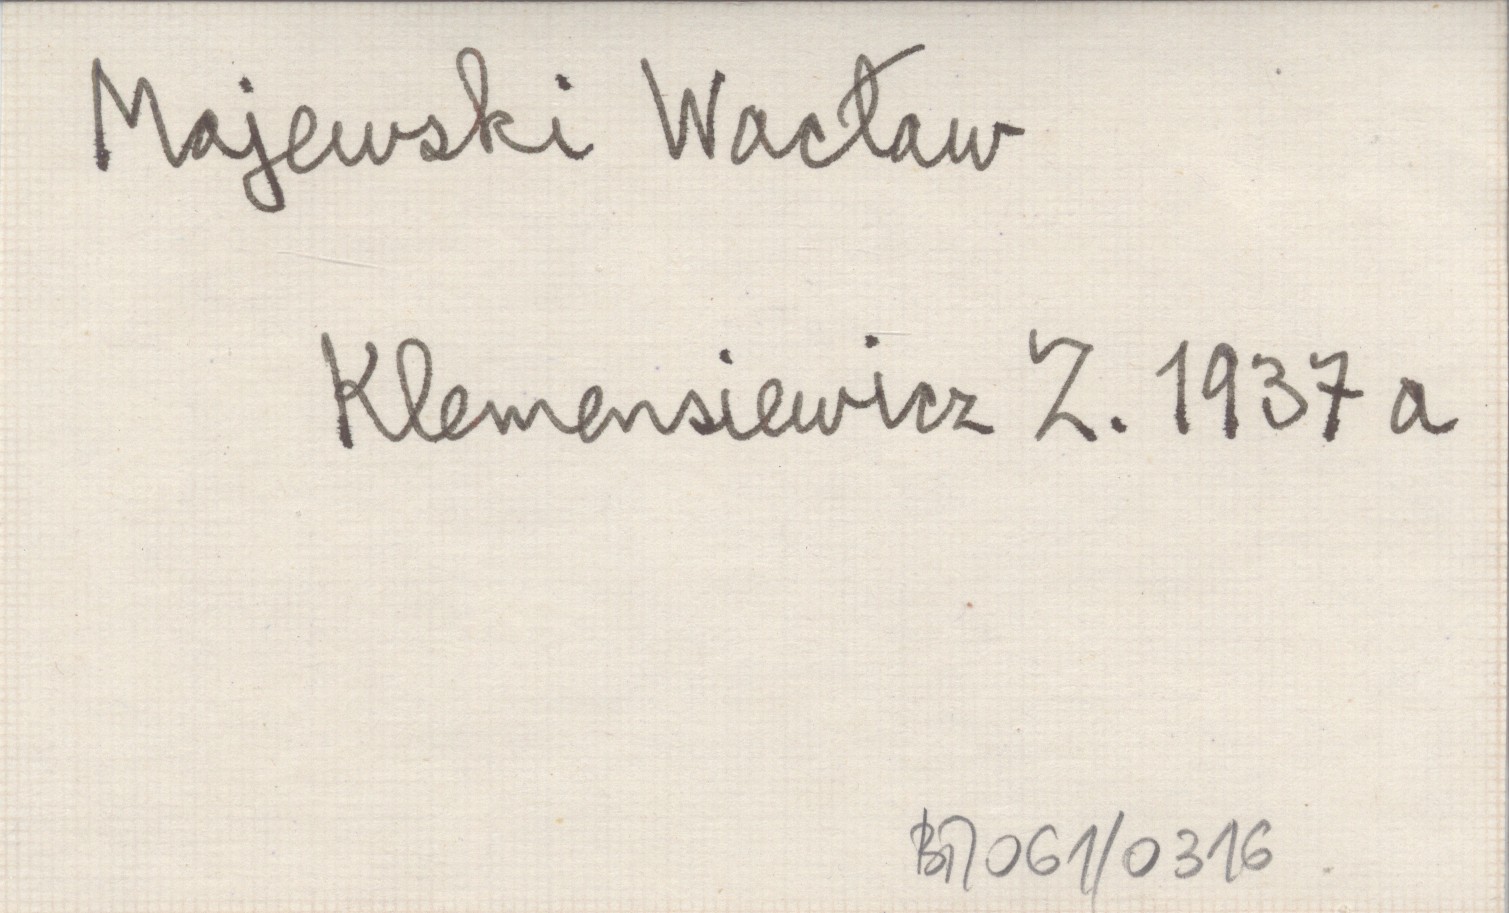 Majewski Wacław
Klemensiewicz Z. 1937 a
061/0316